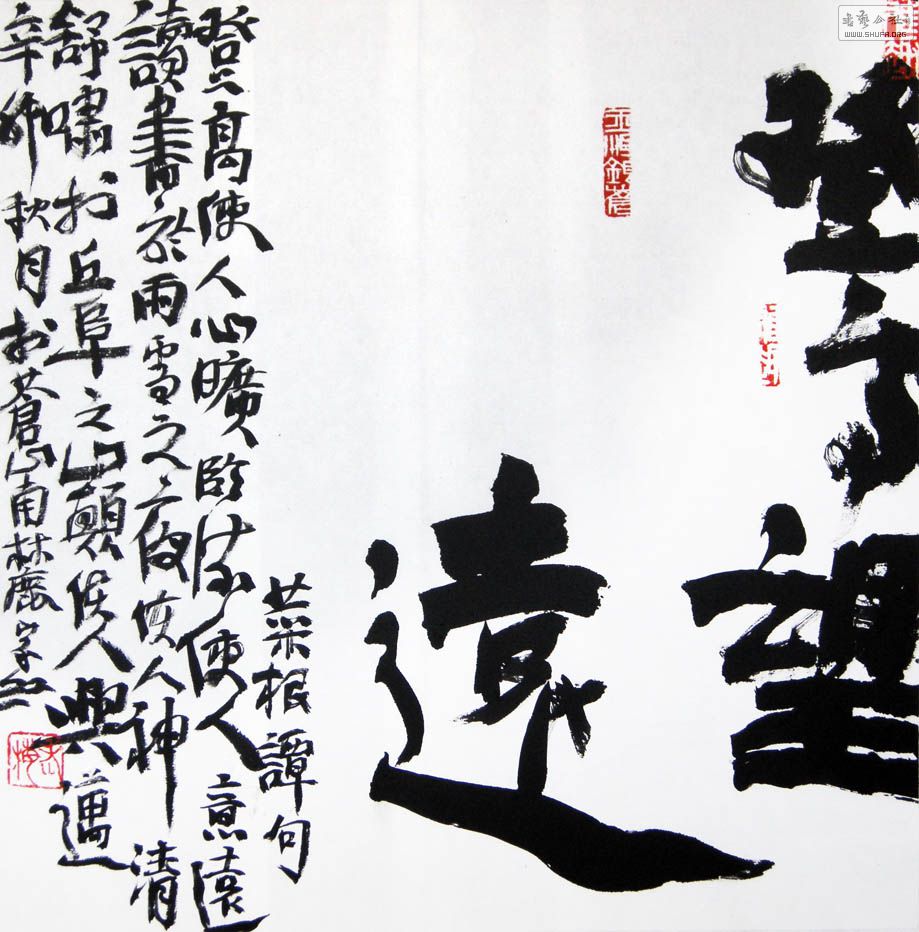 書藝公社
WWW.SHUFA.ORG
登高望
遠
菜根譚句
登高使人心曠臨流使人意遠
讀書於雨雪之夜使人神清
舒嘯扵丘阜之山顛使人興邁
辛卯秋月扵蒼山南林麓